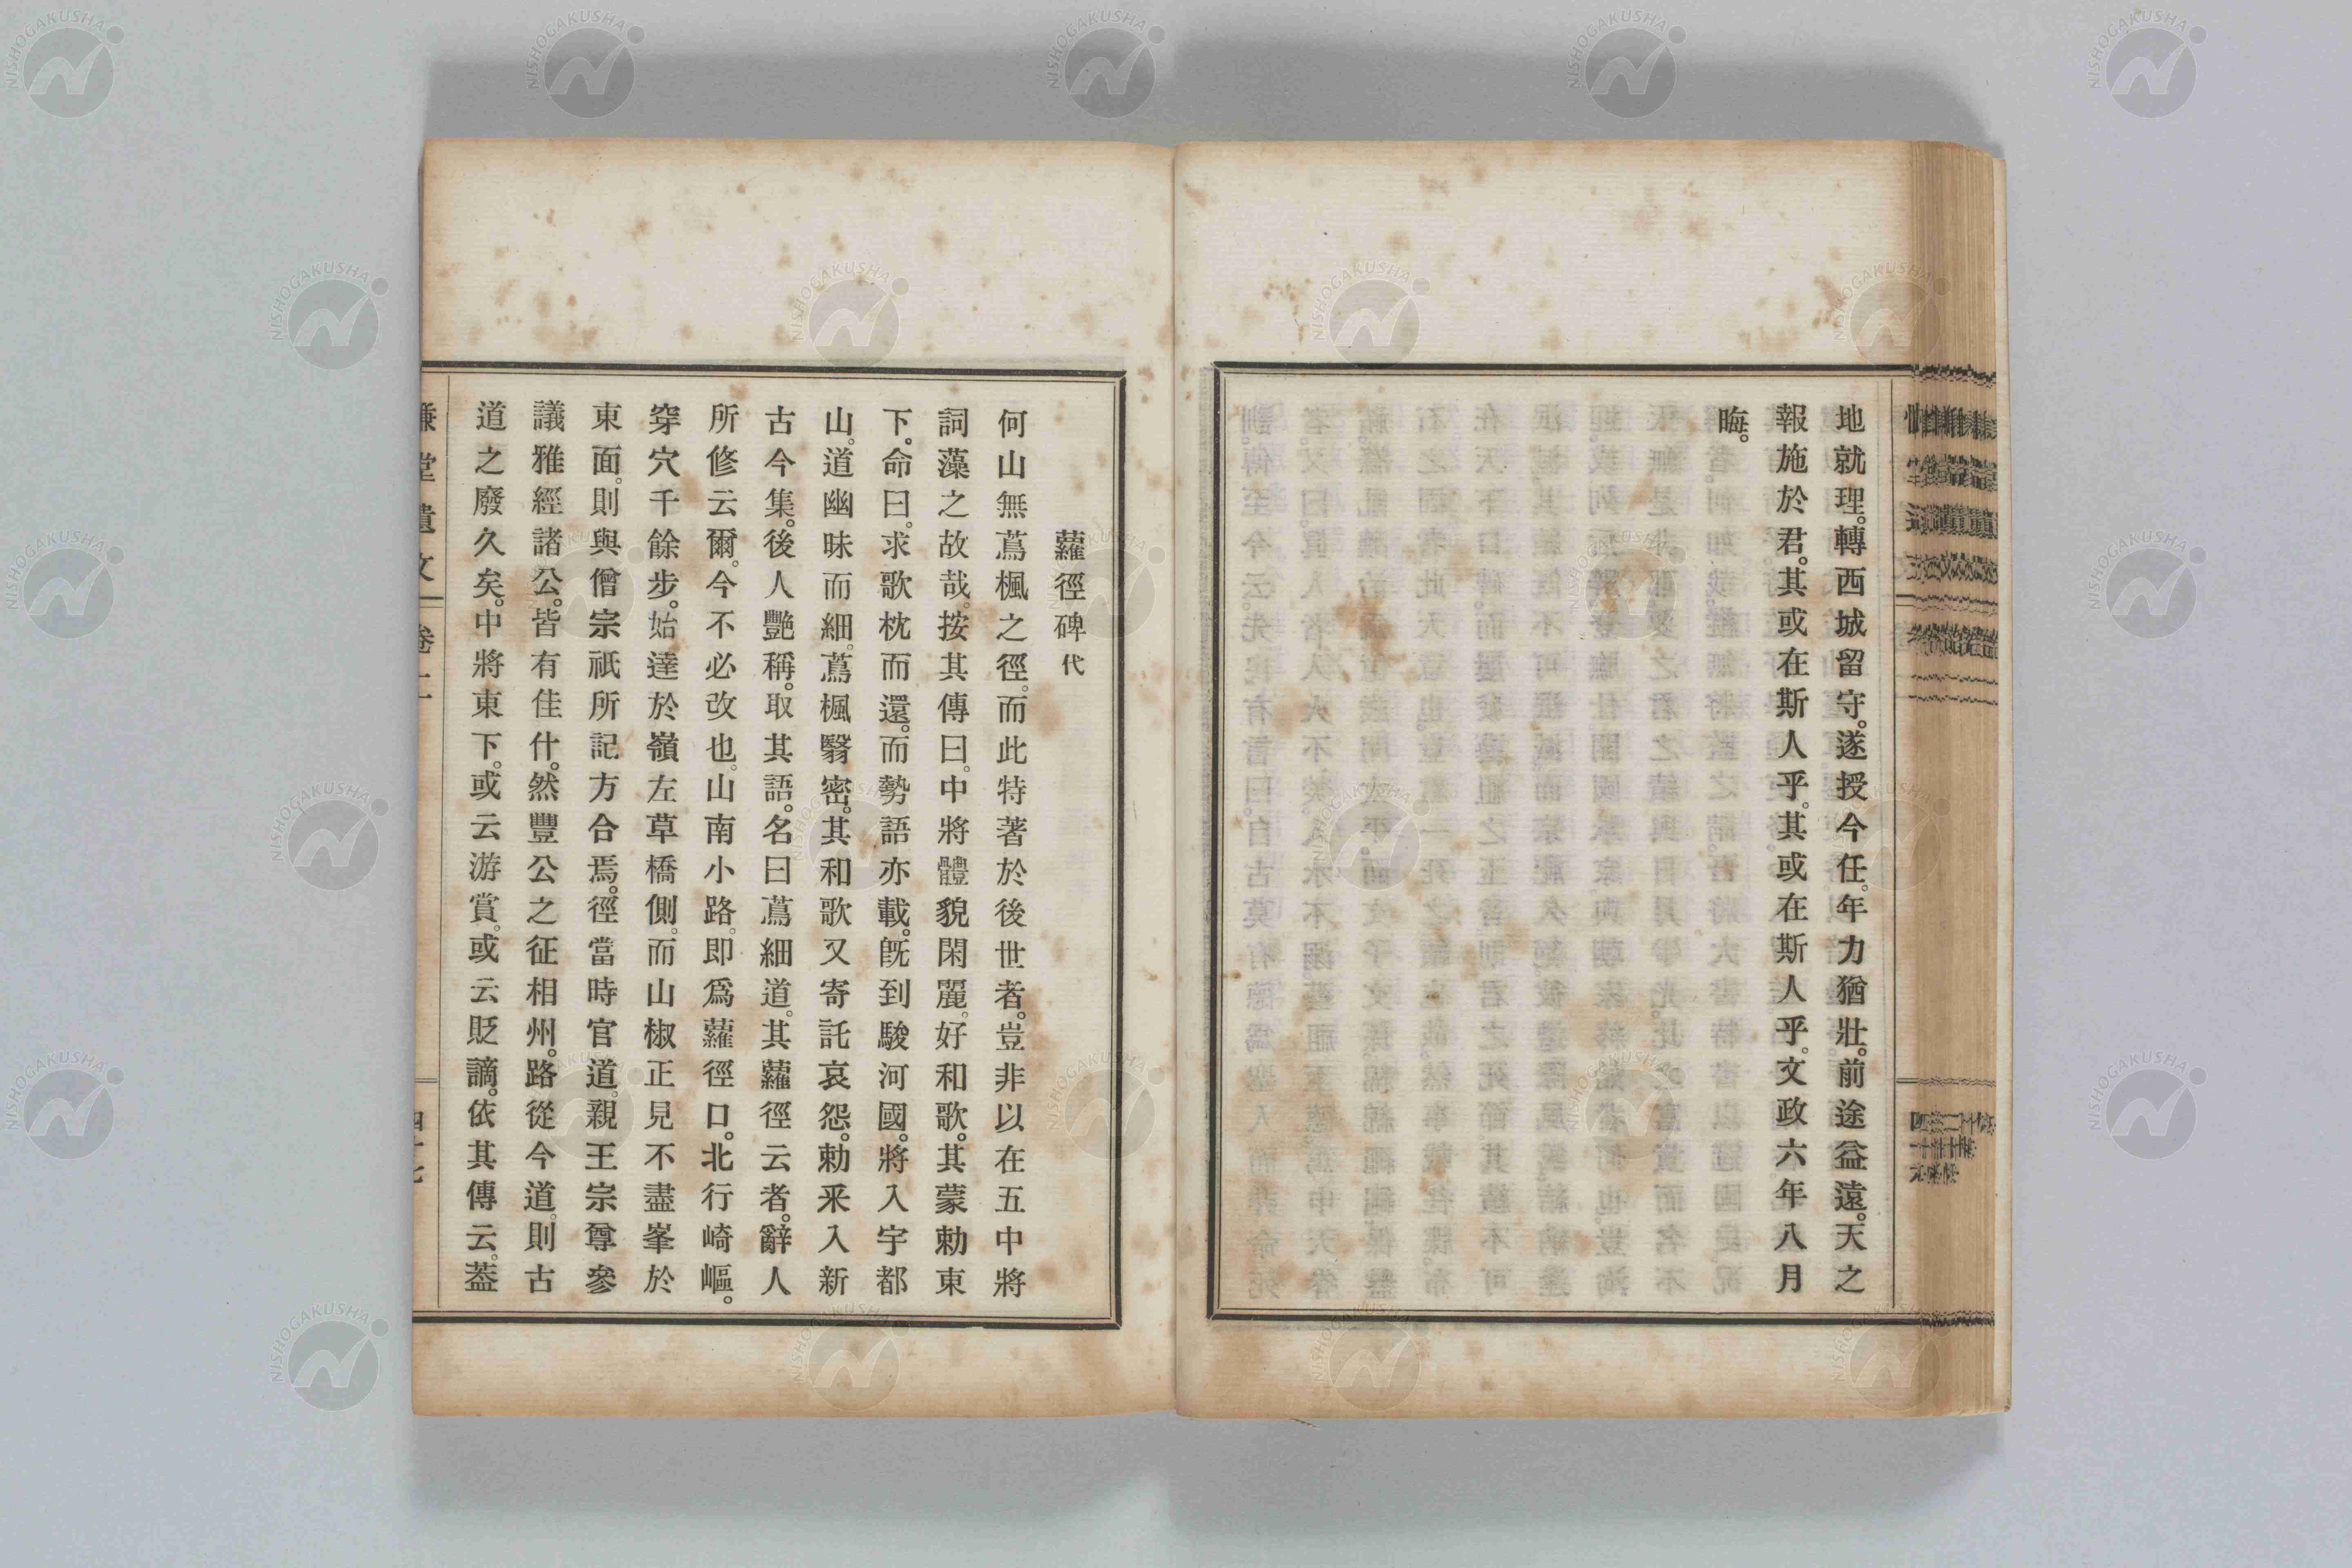 地就理。轉西城留守。遂授今任。年力猶壯。前途益遠。天之
報施於君。其或在斯人乎。其或在斯人乎。文政六年八月
晦。
蘿徑碑代
何山無蔦楓之徑。而此特著於後世者。豈非以在五中將
詞藻之故哉。按其傳曰。中將體貌閑麗。好和歌。其蒙勅東
下。命曰。求歌枕而還。而勢語亦載。旣到駿河國。將入宇都
山。道幽昧而細。蔦楓翳密。其和歌又寄託哀怨。勅釆入新
古今集。後人艷稱。取其語。名曰蔦細道。其蘿徑云者。辭人
所修云爾。今不必改也。山南小路。即爲蘿徑口。北行崎嶇。
穿穴千餘步。始達於嶺左草橋側。而山椒正見不盡峯於
東面。則與僧宗祇所記方合焉。徑當時官道。親王宗尊參
議雅經諸公。皆有佳什。然豐公之征相州。路從今道。則古
道之廢久矣。中將東下。或云游賞。或云貶謫。依其傳云。葢
慊堂遺文 卷二
NISHOGAKUSHA